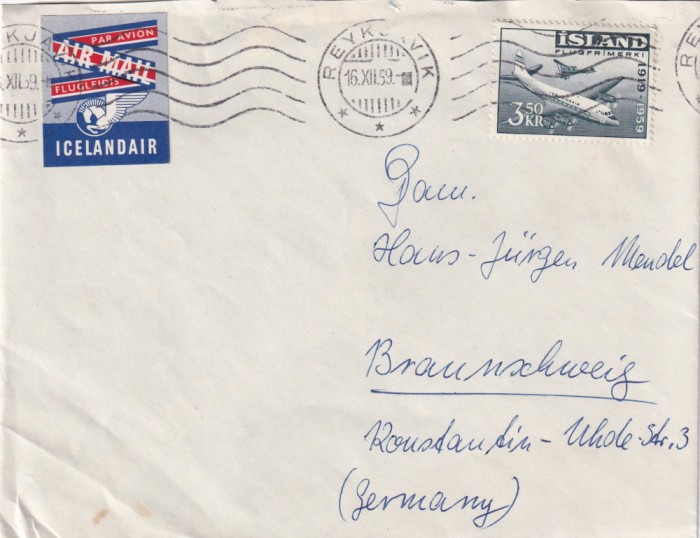 PAR AVION
AIR MAIL
FLUGLEIÐIS
ICELANDAIR
REYKJAVIK
16.XII.59.
ÍSLAND
FLUGFRÍMERKI
1919-1959
3.50
KR
Fam.
Hans-Jürgen Mendel
Braunschweig
Konstantin-Uhde-Str. 3
(Germany)